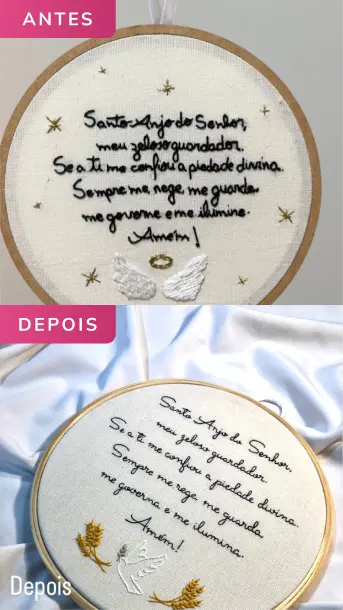 ANTES
Santo Anjo do Senhor,
meu zeloso guardador.
Se a ti me confiou a piedade divina.
Sempre me rege, me guarde,
me governe e me ilumine.
Amém!
DEPOIS
Santo Anjo do Senhor,
meu zeloso guardador.
Se a ti me confiou a piedade divina.
Sempre me rege, me guarda
me governa e me ilumina.
Amém!
Depois